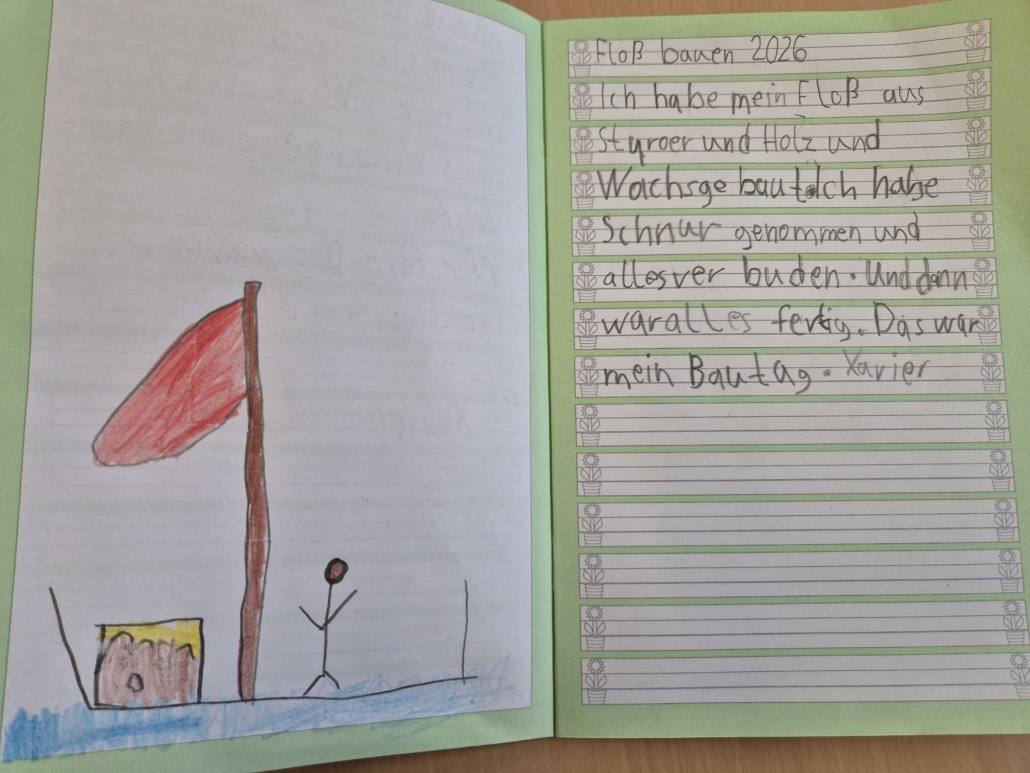 Floß bauen 2026
Ich habe mein Floß aus
Styroer und Holz und
Wachsge baut. Ich habe
Schnur genommen und
allesver buden. Und dann
war alles fertig. Das war
mein Bautag. Xavier